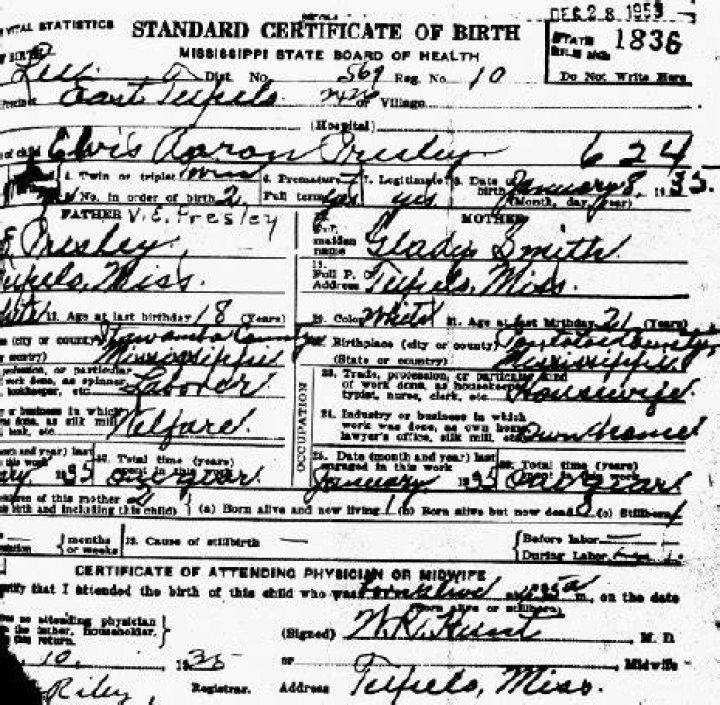 DEC 28 1953
VITAL STATISTICS STANDARD CERTIFICATE OF BIRTH STATE FILE NO. 1836
MISSISSIPPI STATE BOARD OF HEALTH
Lee Dist. No. 569 Reg. No. 10 Do Not Write Here
East Tupelo or Village
(Hospital)
of child Elvis Aaron Presley 624
4. Twin or triplet Twin 6. Premature 7. Legitimate? 8. Date of birth January 8, 1935.
No. in order of birth 2 Full term yes yes (Month, day, year)
FATHER V. E. Presley MOTHER
E Presley maiden name Gladys Smith
Tupelo, Miss. Full P. O. Address Tupelo, Miss.
Age at last birthday 18 (Years) 20. Color White 21. Age at last birthday 21 (Years)
(city or county) Itawamba County Birthplace (city or county) Pontotoc County
country) Mississippi (State or country) Mississippi
profession, or particular 23. Trade, profession, or particular kind
work done, as spinner, Laborer of work done, as housekeeper, Housewife
bookkeeper, etc. typist, nurse, clerk, etc.
or business in which OCCUPATION 24. Industry or business in which
done, as silk mill, Welfare work was done, as own home, Own Home
bank, etc. lawyer's office, silk mill, etc.
month and year) last Total time (years) 25. Date (month and year) last Total time (years)
this work spent in this work engaged in this work this work
1935 one year January 1935 one year
children of this mother
birth and including this child) (a) Born alive and now living 1 (b) Born alive but now dead 0 (c) Stillborn 1
months or weeks 28. Cause of stillbirth — Before labor —
During Labor
CERTIFICATE OF ATTENDING PHYSICIAN OR MIDWIFE
certify that I attended the birth of this child who was born alive at m., on the date
(Born alive or stillborn)
no attending physician
the father, householder, (Signed) W. R. Hunt, M. D.
this return.
10, 1935 or Midwife
Riley, Registrar. Address Tupelo, Miss.